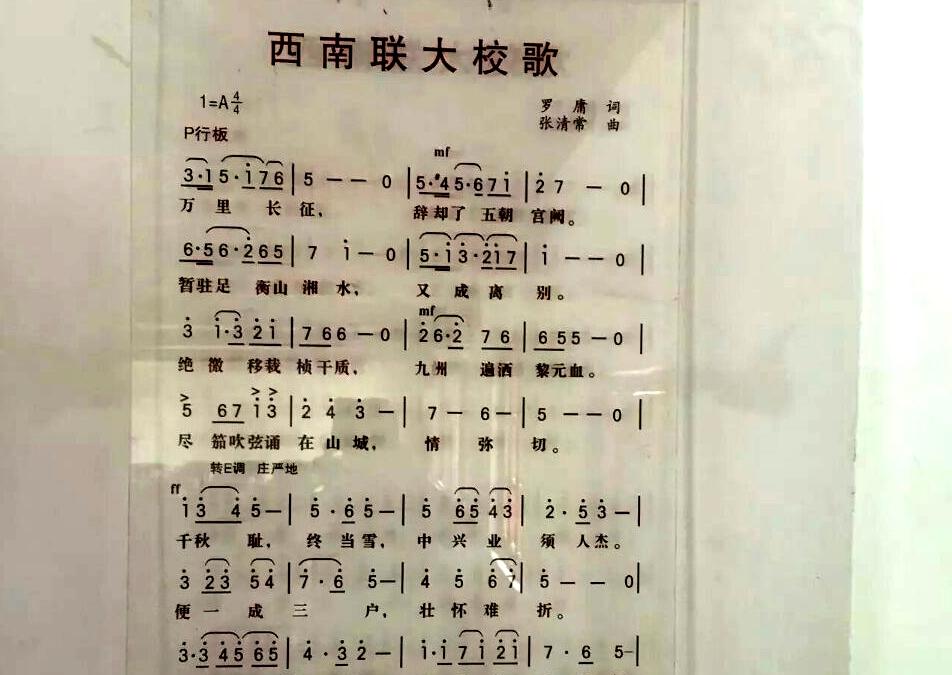 西南联大校歌
1=A 4/4
罗庸 词
张清常 曲
P行板
mf
3·1 5·i 7 6 | 5 – – 0 | 5·#4 5·6 7 i | 2 7 – 0 |
万里长征, 辞却了五朝宫阙。
6·5 6·2 6 5 | 7 i – 0 | 5·i 3·2 i 7 | i – – 0 |
暂驻足衡山湘水, 又成离别。
mf
3 i·3 2 i | 7 6 6 – 0 | 2 6·2 7 6 | 6 5 5 – 0 |
绝徼移栽桢干质, 九州遍洒黎元血。
> > >
5 6 7 i 3 | 2 4 3 – | 7 – 6 – | 5 – – 0 |
尽笳吹弦诵在山城, 情弥切。
转E调 庄严地
ff
i 3 4 5 – | 5·6 5 – | 5 6 5 4 3 | 2·5 3 – |
千秋耻, 终当雪, 中兴业须人杰。
3 2 3 5 4 | 7·6 5 – | 4 5 6 7 | 5 – – 0 |
便一成三户, 壮怀难折。
3·3 4 5 6 5 | 4·3 2 – | i·i 7 i 2 i | 7·6 5 – |